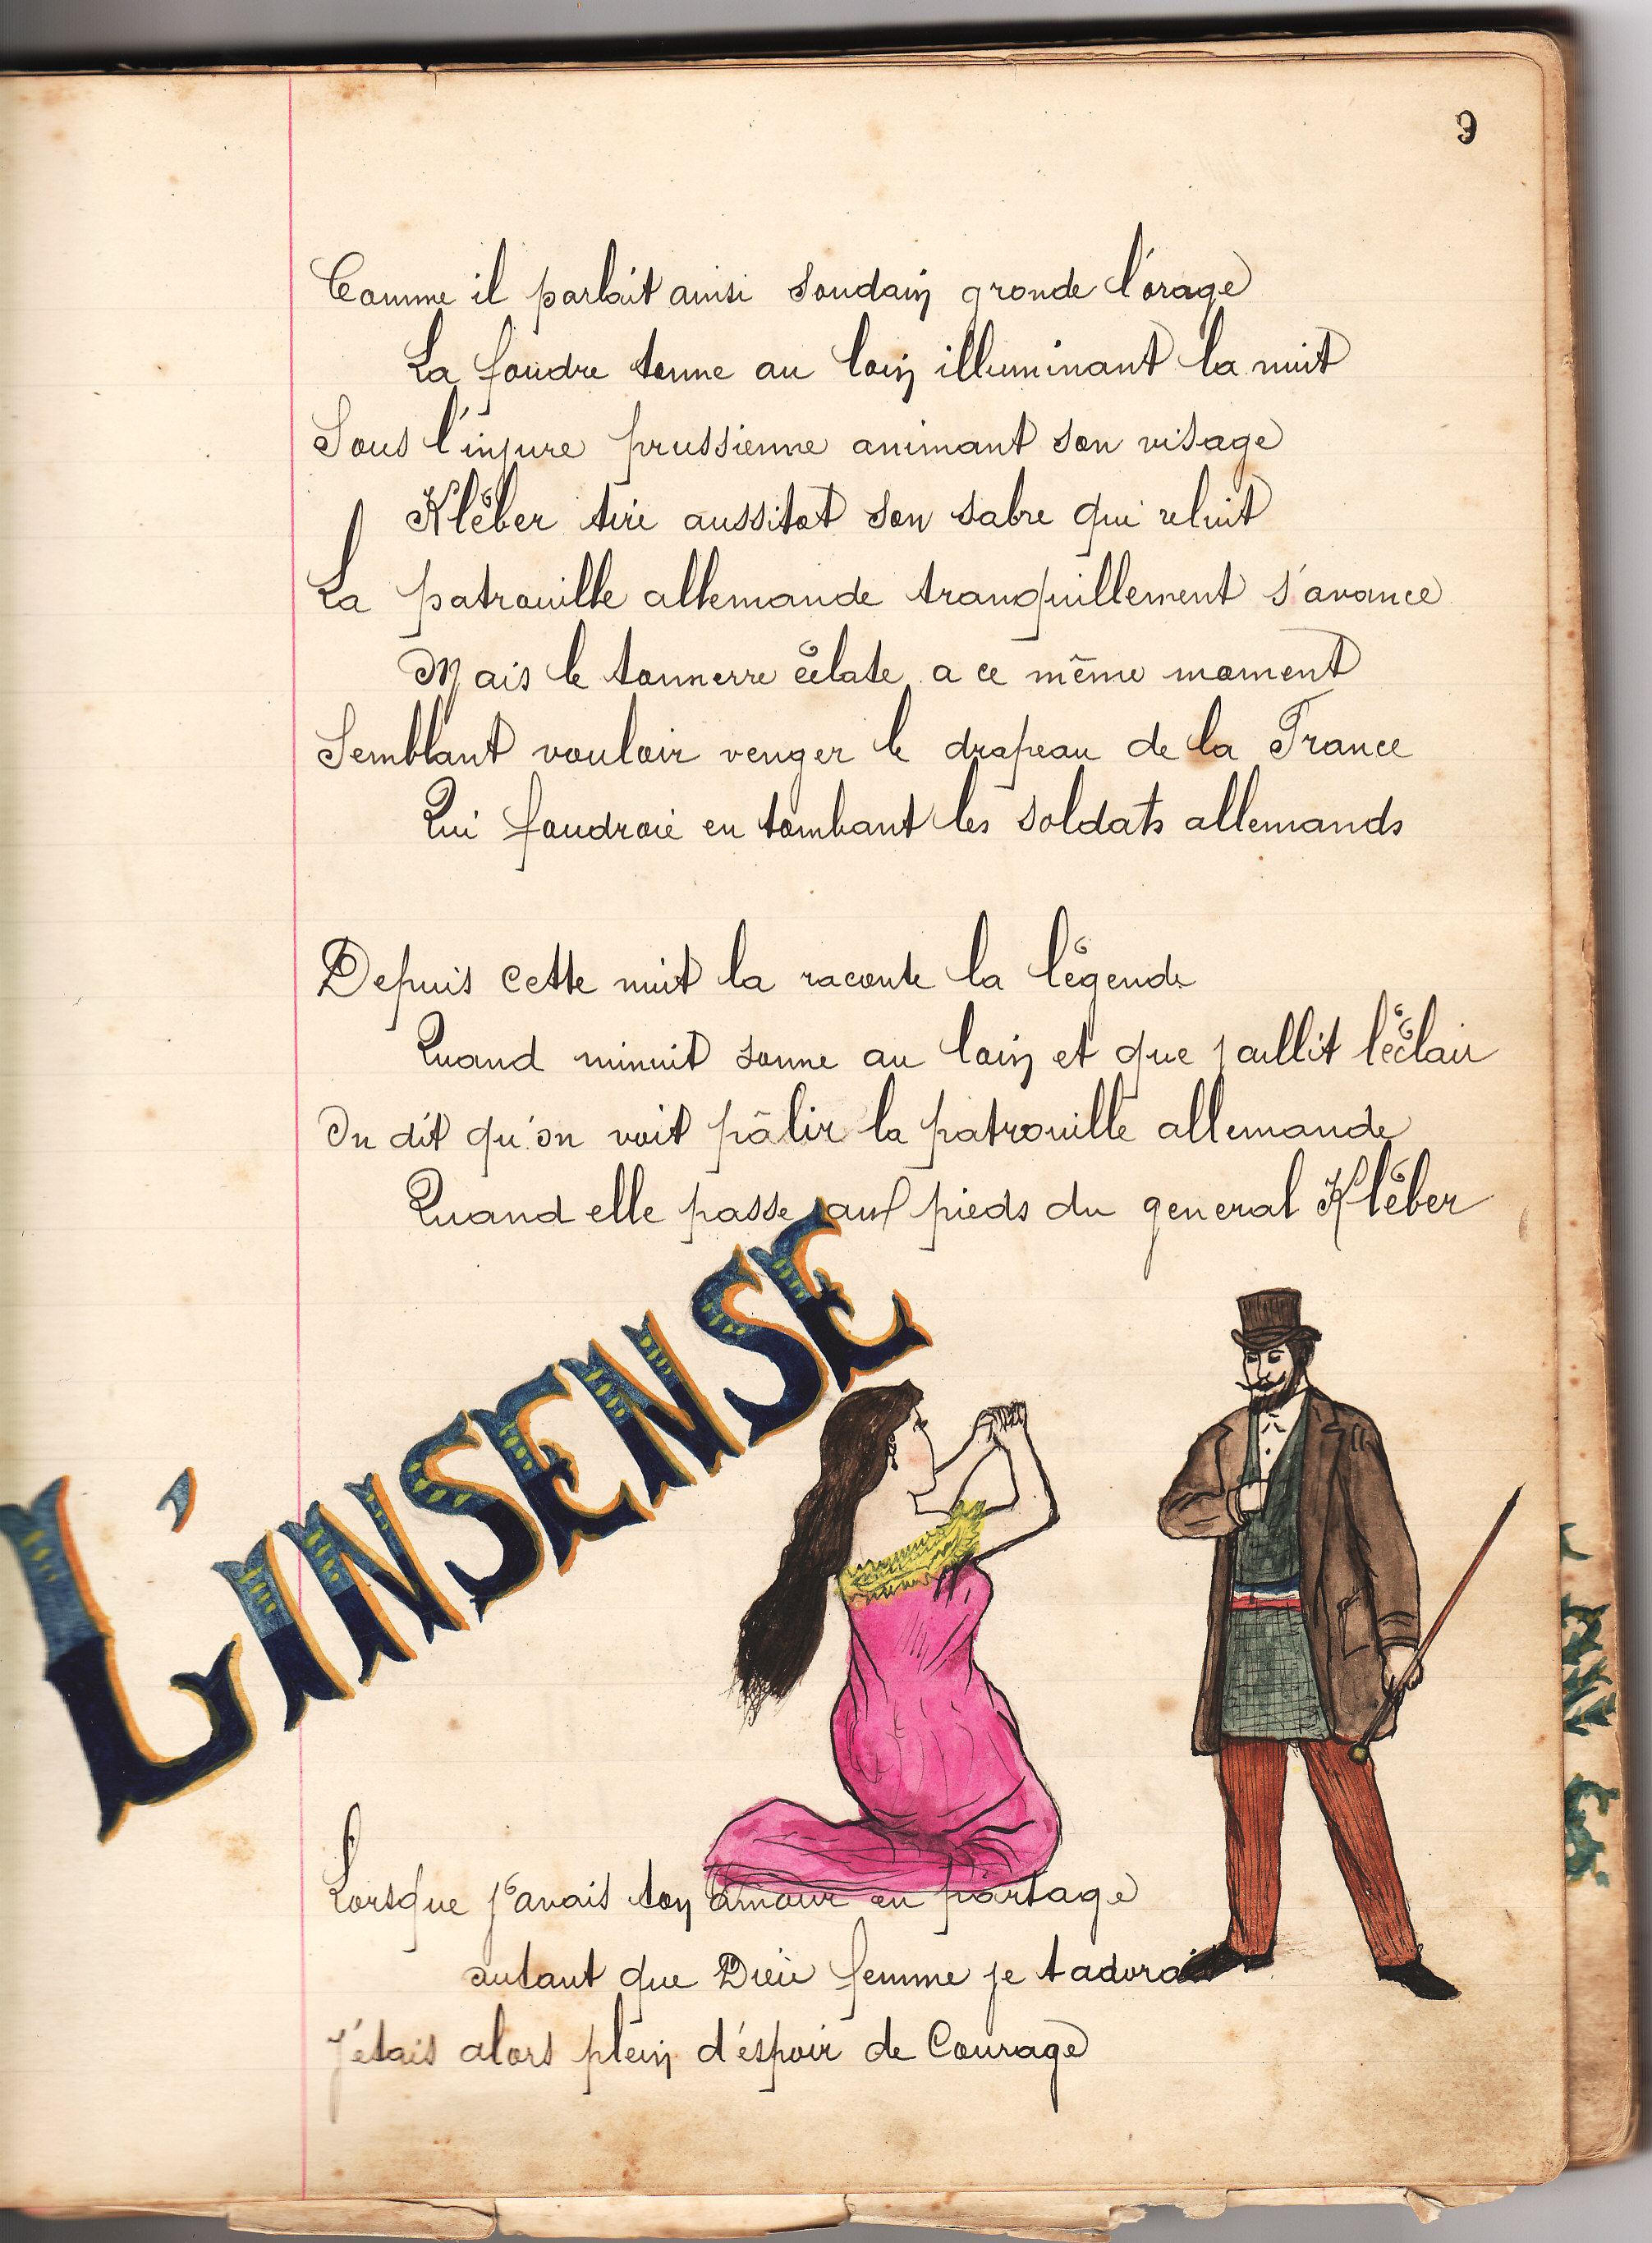 9
Comme il parlait ainsi soudain gronde l'orage
La foudre tonne au loin illuminant la nuit
Sous l'injure prussienne animant son visage
Kléber tire aussitot son sabre qui reluit
La patrouille allemande tranquillement s'avance
Mais le tonnerre éclate a ce même moment
Semblant vouloir venger le drapeau de la France
Qui foudroie en tombant les soldats allemands
Depuis cette nuit la raconte la légende
Quand minuit sonne au loin et que jaillit l'éclair
On dit qu'on voit pâlir la patrouille allemande
Quand elle passe aux pieds du general Kléber
L'INSENSE
Lorsque j'avais ton amour en partage
autant que Dieu femme je t adorais
j'étais alors plein d'éspoir de Courage